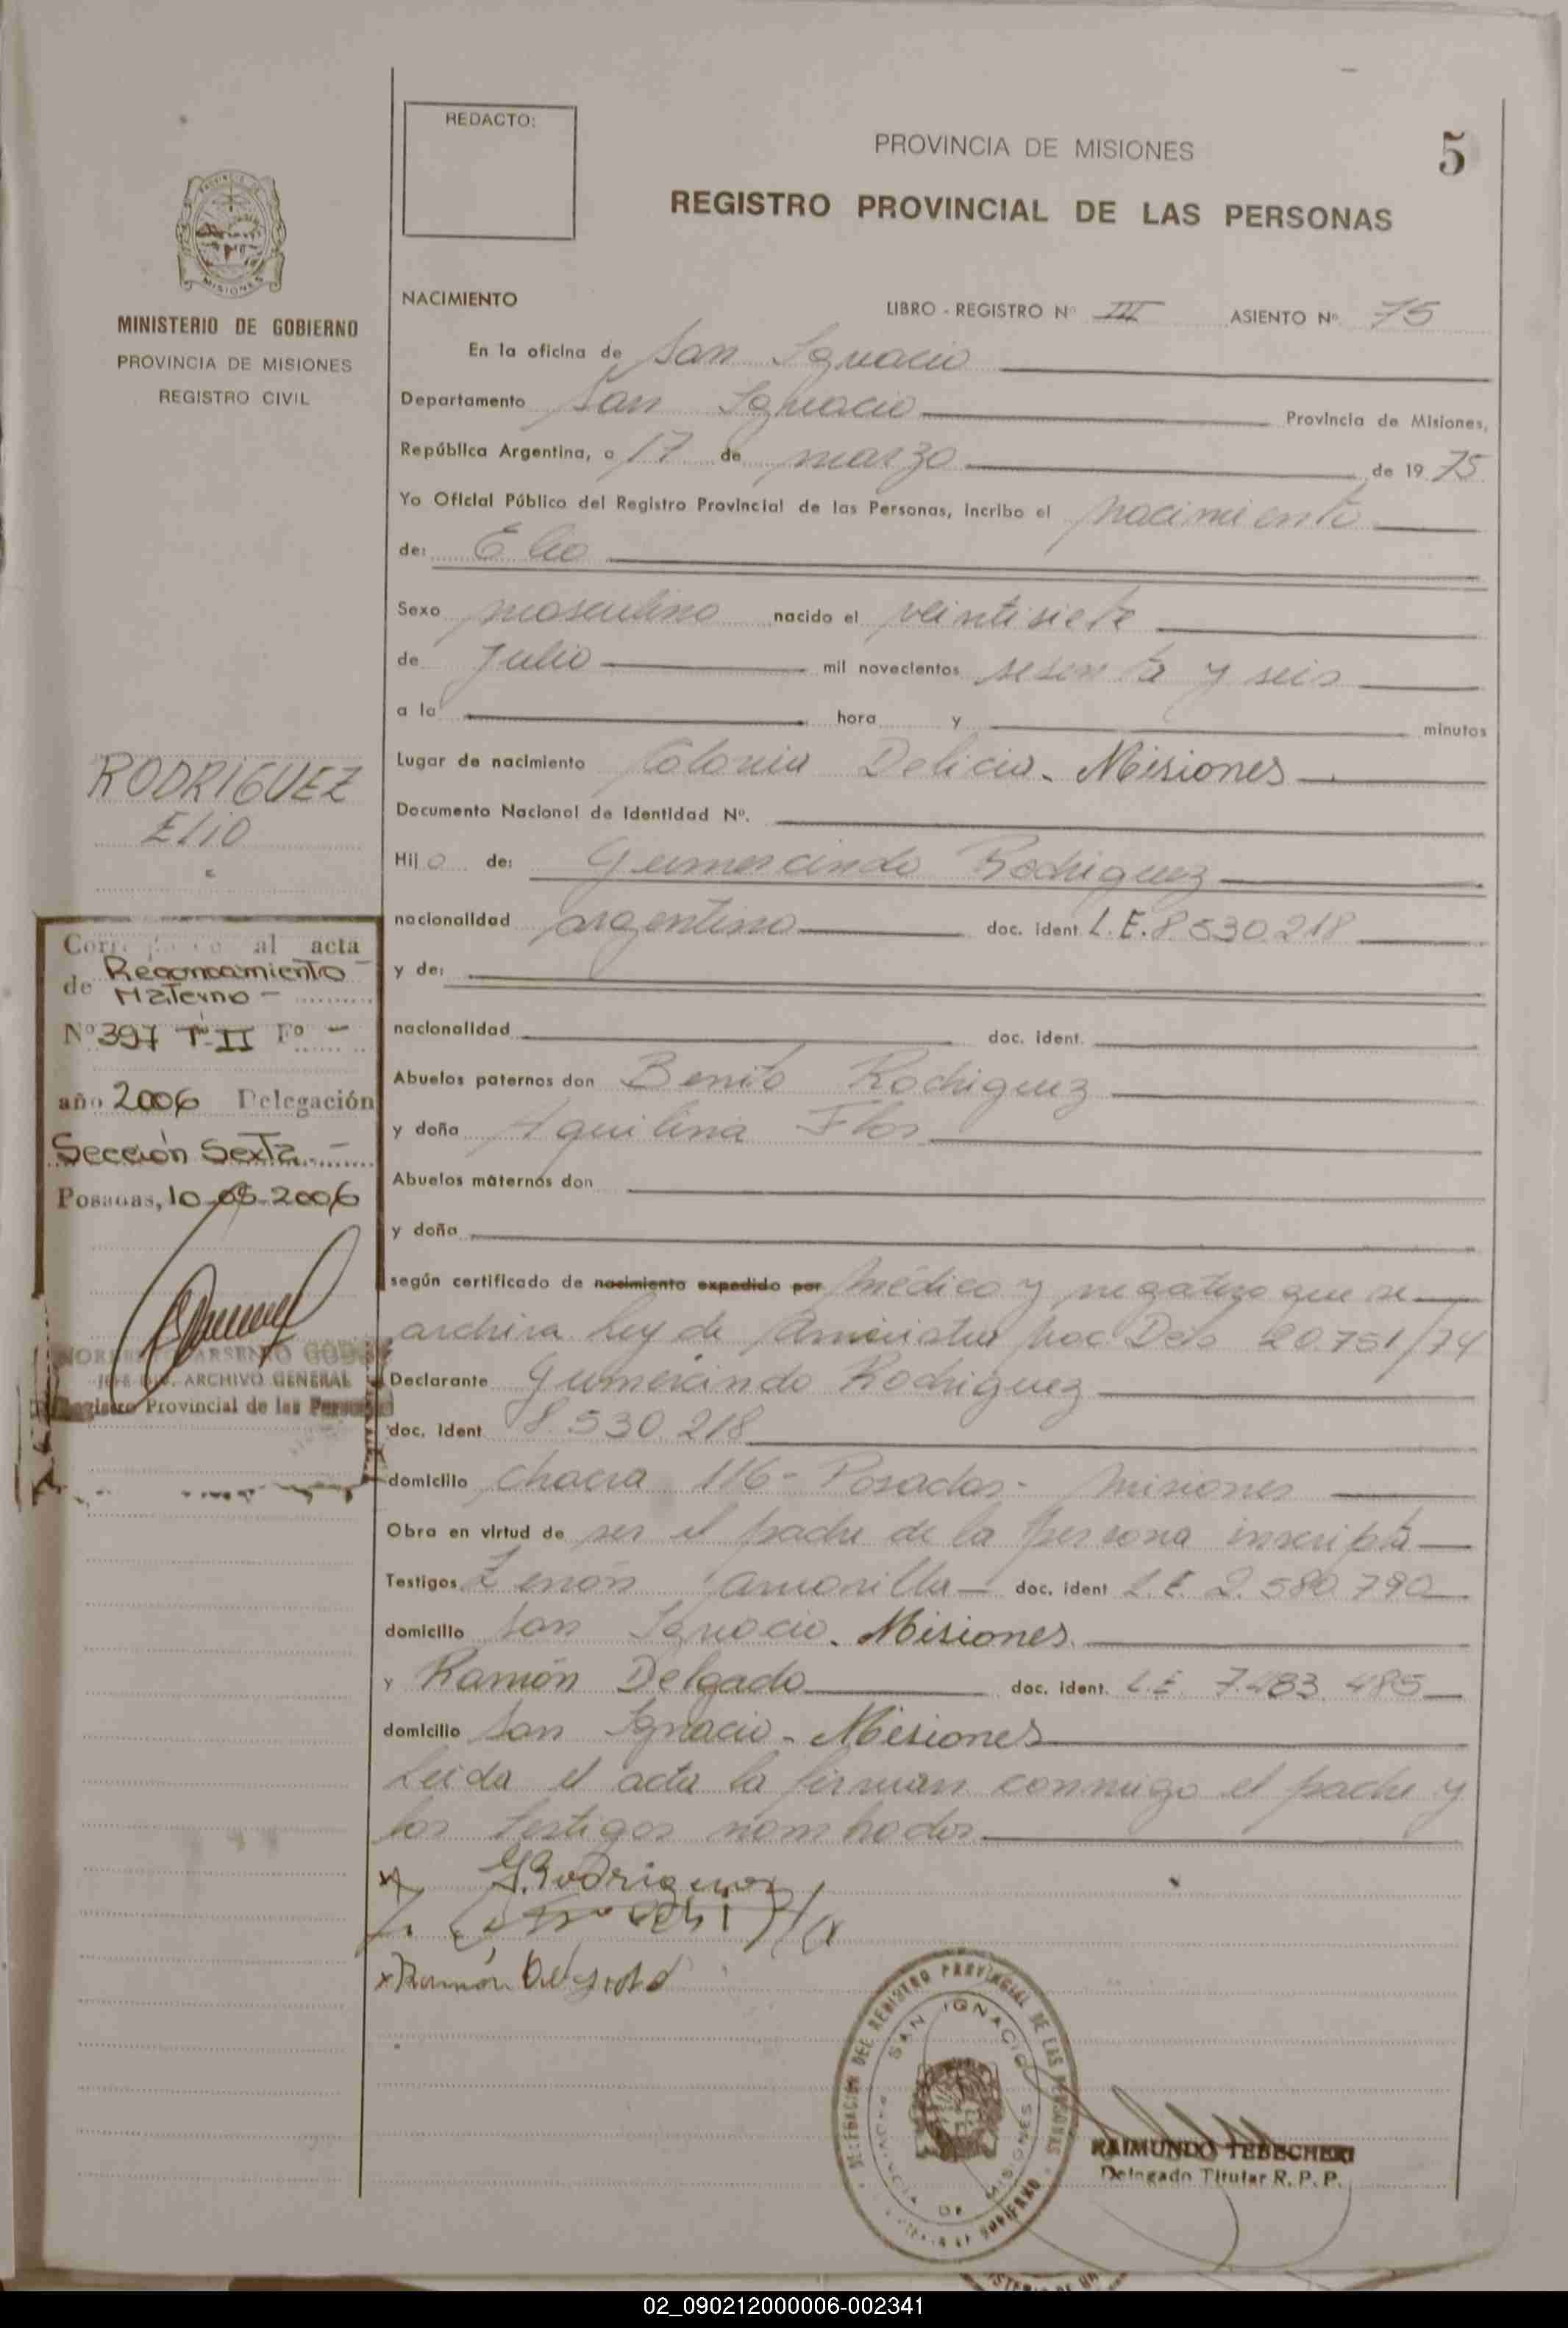 REDACTO:
PROVINCIA DE MISIONES
5
REGISTRO PROVINCIAL DE LAS PERSONAS
MISIONES
MINISTERIO DE GOBIERNO
PROVINCIA DE MISIONES
REGISTRO CIVIL
NACIMIENTO
LIBRO - REGISTRO Nº III ASIENTO Nº 75
En la oficina de San Ignacio
Departamento San Ignacio Provincia de Misiones,
República Argentina, a 17 de marzo de 1975
Yo Oficial Público del Registro Provincial de las Personas, incribo el nacimiento
de: Elio
Sexo masculino nacido el veintisiete
de Julio mil novecientos sesenta y seis
a la hora y minutos
Lugar de nacimiento Colonia Delicia - Misiones
RODRIGUEZ
ELIO
Documento Nacional de Identidad Nº.
Hijo de: Gumercindo Rodriguez
nacionalidad argentina doc. ident. L.E. 8.530.218
y de:
nacionalidad doc. ident.
Abuelos paternos don Benito Rodriguez
y doña Aquilina Flor
Abuelos maternos don
y doña
Corresponde al acta
de Reconocamiento
Materno -
Nº 397 Tº II Fº -
año 2006 Delegación
Sección Sexta -
Posadas, 10-05-2006
ARCHIVO GENERAL
Registro Provincial de las Personas
según certificado de nacimiento expedido por médico y negativo que se
archiva Ley de Amnistia Nac. Dcto 20.751/74
Declarante Gumercindo Rodriguez
doc. ident 8.530.218
domicilio chacra 116 - Posadas - Misiones
Obra en virtud de ser el padre de la persona inscripta
Testigos Zenón Amarilla doc. ident L.E. 2.580.790
domicilio San Ignacio. Misiones.
y Ramón Delgado doc. ident. L.E. 7.483.485
domicilio San Ignacio - Misiones
Leida el acta la firman conmigo el padre y
los testigos nombrados
G. Rodriguez
x Ramón Delgado
DELEGACION DEL REGISTRO PROVINCIAL DE LAS PERSONAS
SAN IGNACIO
PROVINCIA DE MISIONES
MINISTERIO DE GOBIERNO
RAIMUNDO TEBECHERI
Delegado Titular R. P. P.
02_090212000006-002341